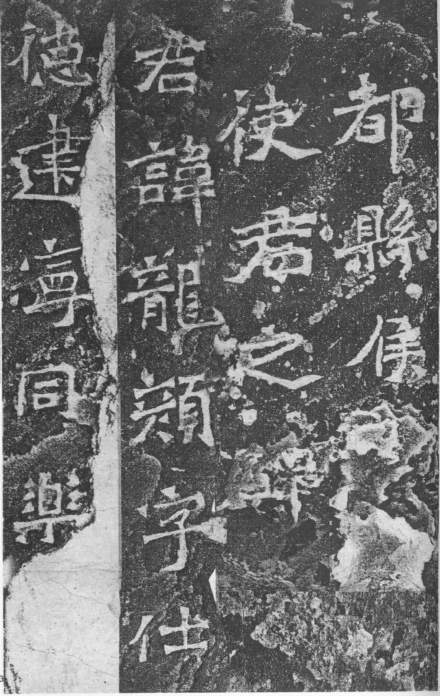 都縣侯
使君之碑
君諱龍顔字仕
德建寧同樂